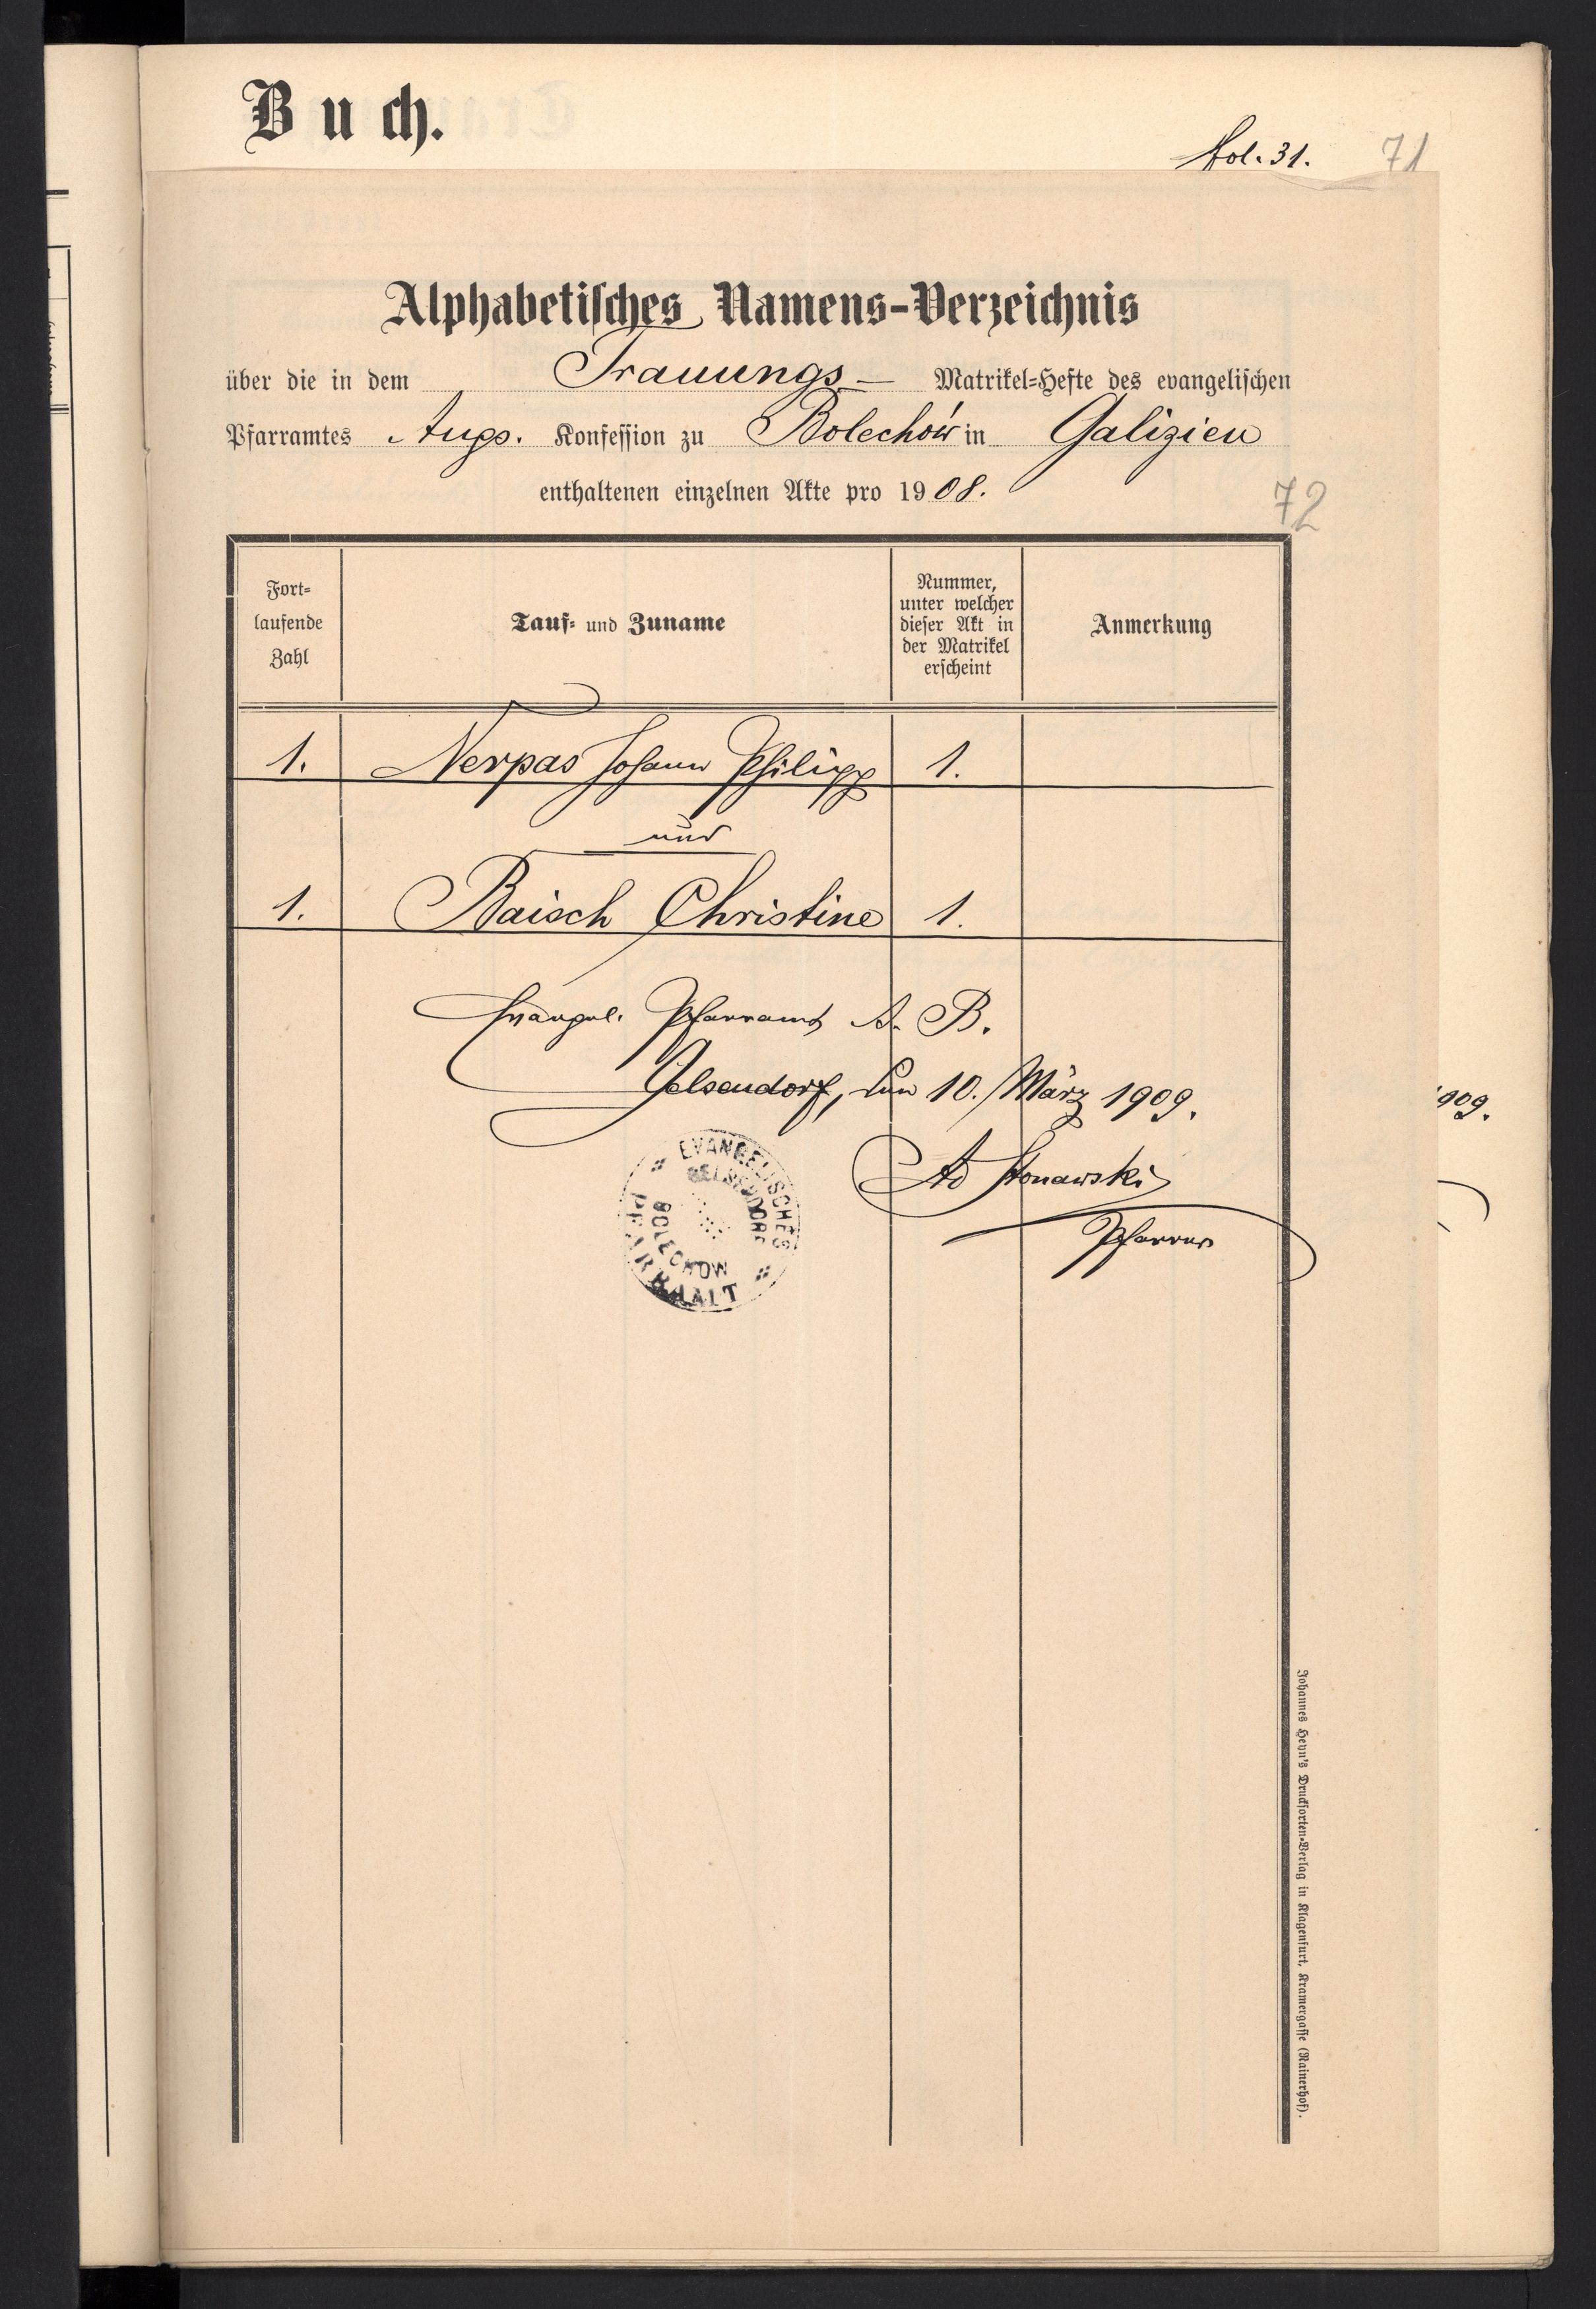 Buch.
fol. 31. 71
Alphabetisches Namens-Verzeichnis
über die in dem Trauungs- Matrikel-Hefte des evangelischen
Pfarramtes Augs. Konfession zu Bolechów in Galizien
enthaltenen einzelnen Akte pro 1908.
72
Fort-
laufende
Zahl
Tauf- und Zuname
Nummer,
unter welcher
dieser Akt in
der Matrikel
erscheint
Anmerkung
1. Nerpas Johann Philipp 1.
und
1. Baisch Christine 1.
Evangel. Pfarramt A. B.
Gelsendorf, den 10. März 1909.
909.
Ad Stonawski
Pfarrer
EVANGELISCHES
GELSENDORF
BOLECHOW
Johannes Heyn's Drucksorten-Verlag in Klagenfurt, Kramergasse (Rainerhof).